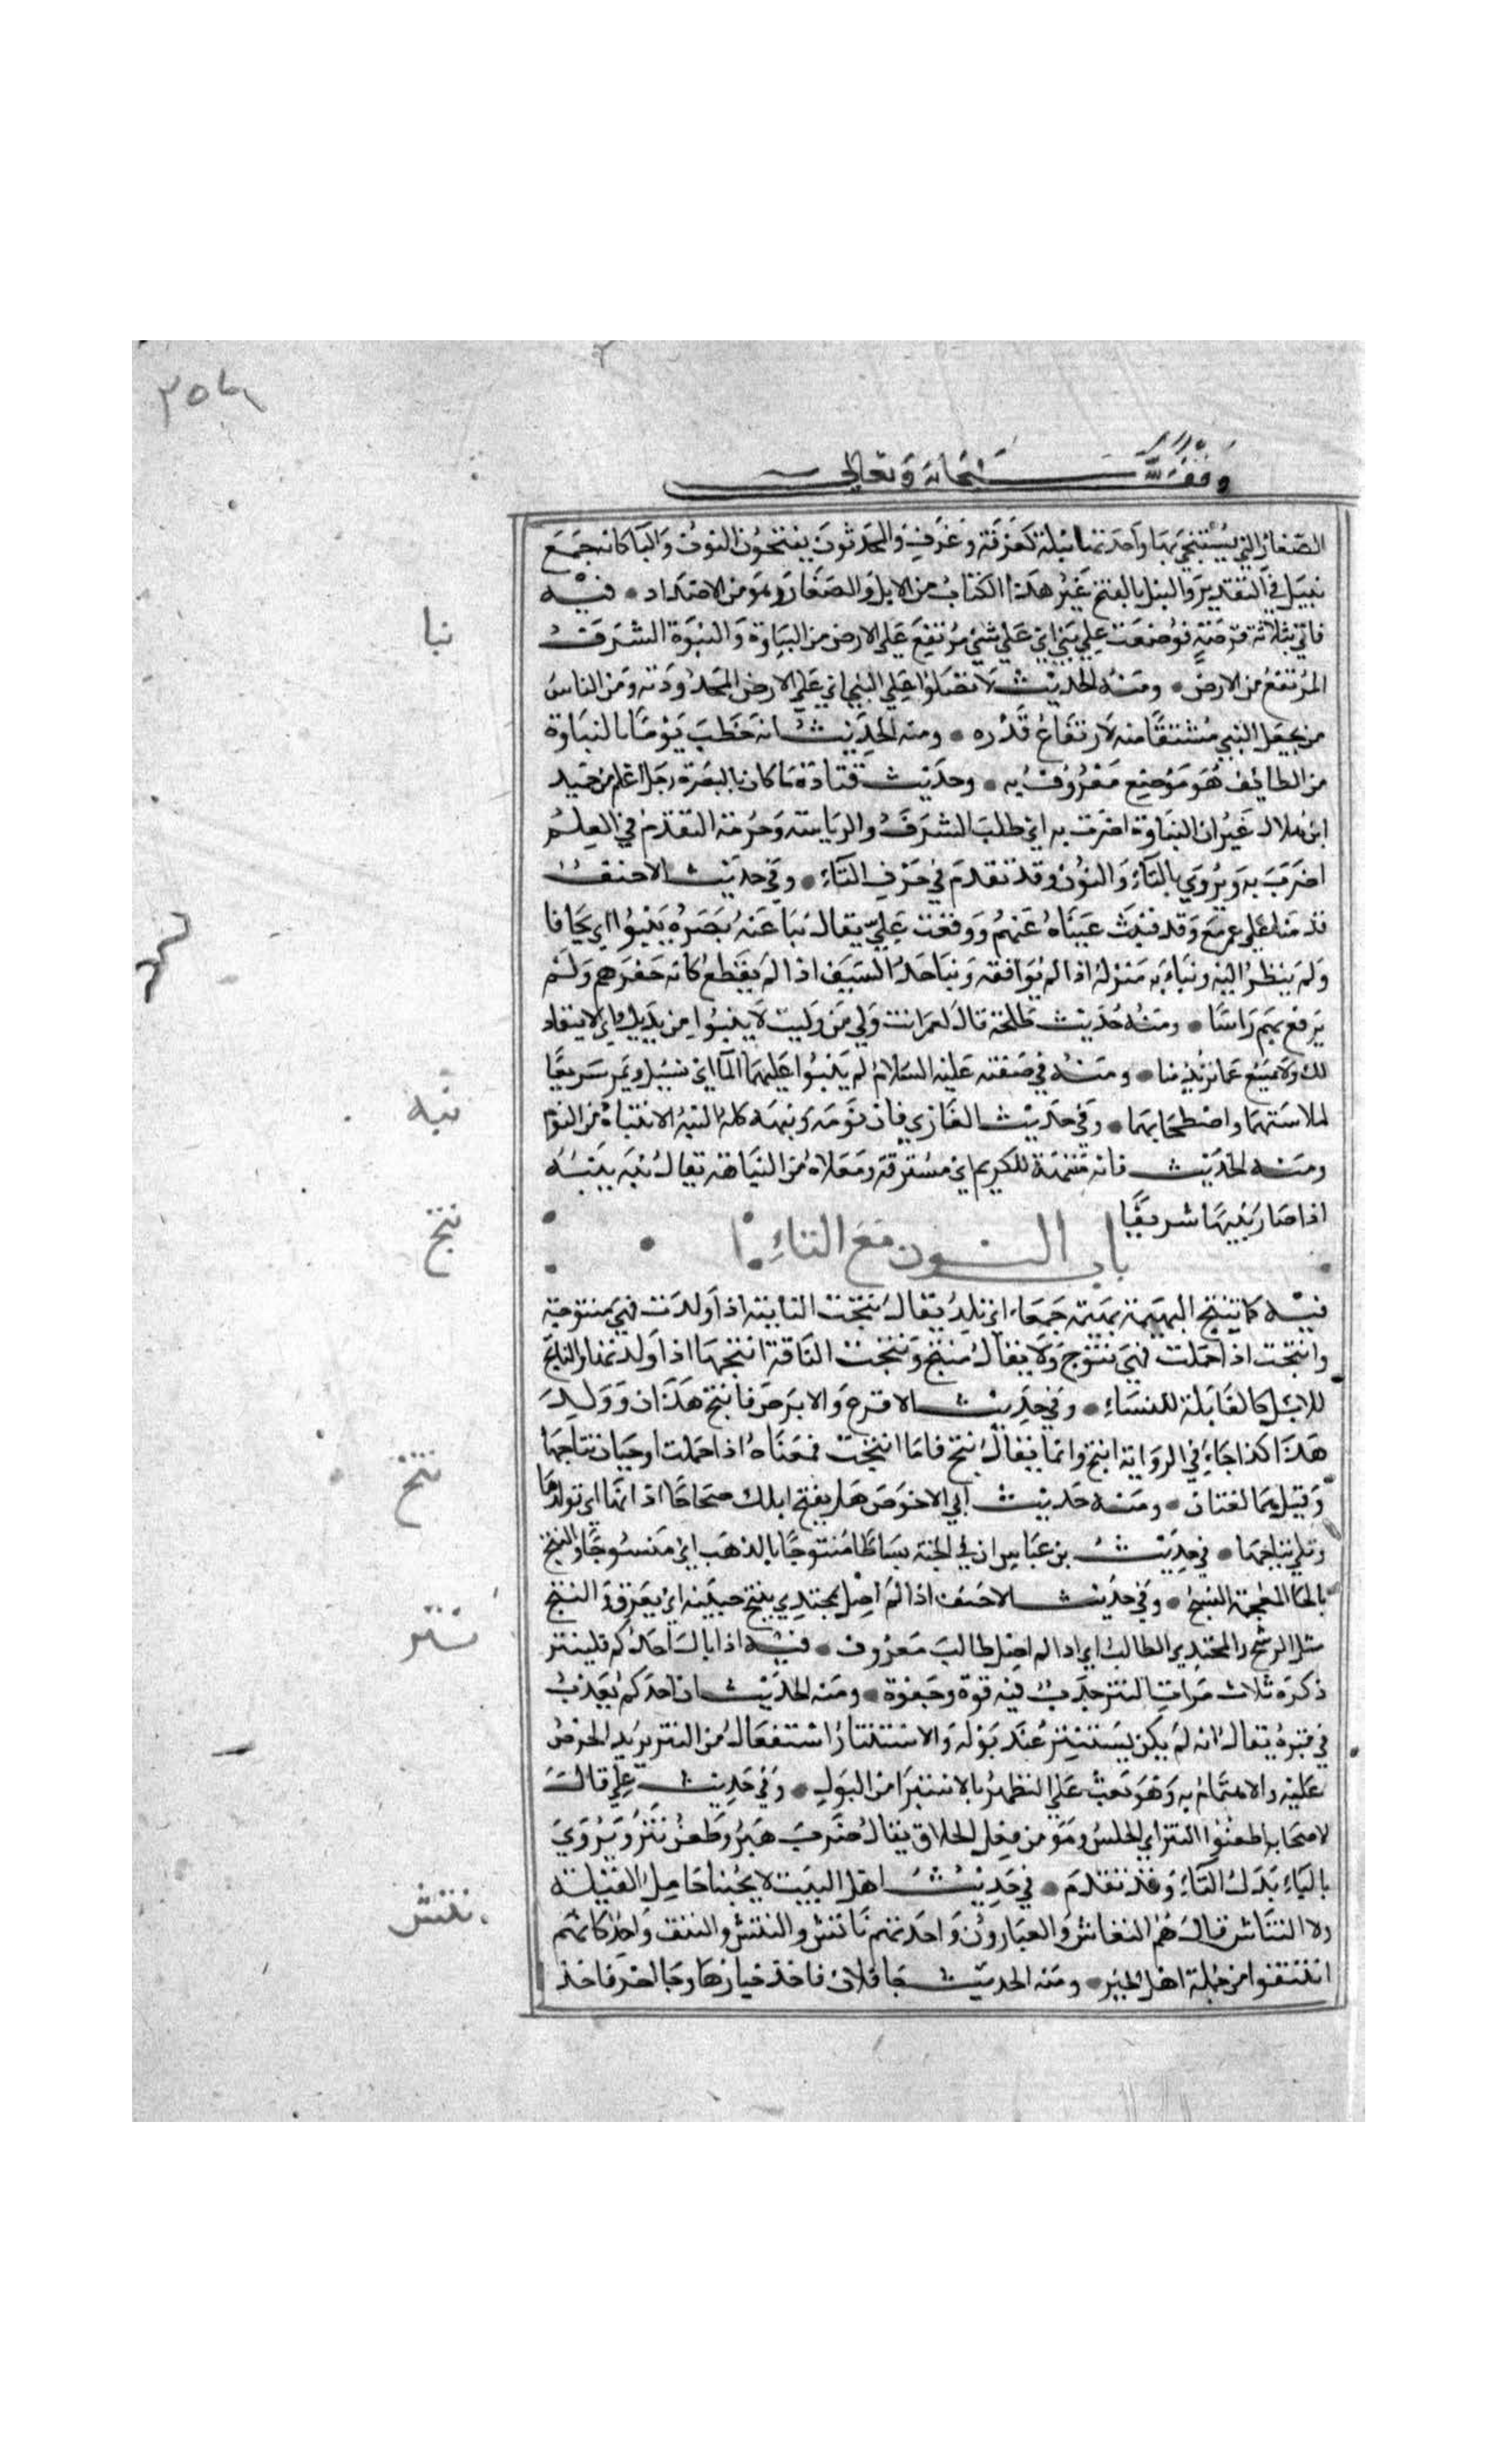 وقف لله سبحانه وتعالى
الصغار التي يستنجى بها واحدتها نبلة كغرفة وغرف والمحدثون يفتحون النون والبا كانه جمع
نبيل في التقدير والنبل بالفتح غير هذا الكتاب من الابل والصغار وهو من الاضداد • فيه
نبا
فاتي بثلاثة قرصة فوضعت علي نبي اي علي شئ مرتفع علي الارض من النباوة والنبوة الشرف
المرتفع من الارض • ومنه الحديث لا تصلوا علي النبي اي علي الارض المحدودته ومن الناس
من يجعل النبي مشتقا منه لارتفاع قدره • ومنه الحديث انه خطب يوما بالنباوة
من الطائف هو موضع معروف به • وحديث قتادة ما كان بالبصرة رجل اعلم من حميد
ابن هلال غير ان النباوة اضرت به اي طلب الشرف والرياسة وحرمة التقدم في العلم
اضرت به ويروي بالتاء والنون وقد تقدم في حرف التاء • وفي حديث الاحنف
قدمنا علي عمر مع وفد فنبت عيناه عنهم ووقعت علي يقال نبا عنه بصره ينبوا اي تجافا
ولم ينظر اليه ونبا به منزله اذا لم يوافقه ونبا حد السيف اذا لم يقطع كانه حقرهم ولم
يرفع بهم راسا • ومنه حديث طلحة قال لعمر انت ولي من وليت لا ينبوا من يديك اي لا ينقاد
لك ولا يمتنع عما تريد منا • ومنه في صفته عليه السلام لم ينبوا عليهما الما اي يسيل ويمر سريعا
نبه
لملاستهما واصطحابهما • وفي حديث الغازي فان نومه ونبهه كله النبه الانتباه من النوم
ومنه الحديث فانه منبهة للكريم اي مشرفة ومعلاة من النباهة يقال نبه ينبه
اذا صار نبيها شريفا
باب النون مع التاء
نتج
فيه كما تنتج البهيمة بهيمة جمعاء اي تلد يقال نتجت الناقة اذا ولدت فهي منتوجة
وانتجت اذا حملت فهي نتوج ولا يقال منتج ونتجت الناقة انتجها اذا اولدتها والناتج
للابل كالقابلة للنساء • وفي حديث الاقرع والابرص فانتج هذان وولد
هذا كذا جاء في الرواية انتج وانما يقال نتج فاما انتجت فمعناه اذا حملت او حان نتاجها
وقيل هما لغتان • ومنه حديث ابي الاحوص هل تنتج ابلك صحاحا اذانها اي تولدها
نتخ
وتلي نتاجها • في حديث بن عباس ان في الجنة بساطا منتوخا بالذهب اي منسوجا والنتخ
بالخا المعجمة النسج • وفي حديث الاحنف اذا لم اصل مجتدي ينتح جبينه اي يعرق والنتح
مثل الرشح والمجتدي الطالب اي اذا لم اصل طالب معروف • فيه اذا بال احدكم فلينتر
نتر
ذكره ثلاث مرات النتر جذب فيه قوة وجفوة • ومنه الحديث ان احدكم يعذب
في قبره يقال انه لم يكن يستنتر عند بوله والاستنتار استفعال من النتر يريد الحرص
عليه والاهتمام به وهو بعث علي التطهر بالاستبرا من البول • وفي حديث علي قال
لاصحابه اطعنوا النتر اي الخلس وهو من فعل الحذاق يقال ضرب هبر وطعن نتر ويروي
بالباء بدل التاء وقد تقدم • في حديث اهل البيت لا يحبنا حامل القيلة
نتش
ولا النتاش قال هم النغاش والعيارون واحدتهم ناتش والنتش والنتف واحد كانهم
انتتفوا من جملة اهل الخير • ومنه الحديث جا فلان فاخذ خيارها وجا اخر فاخذ